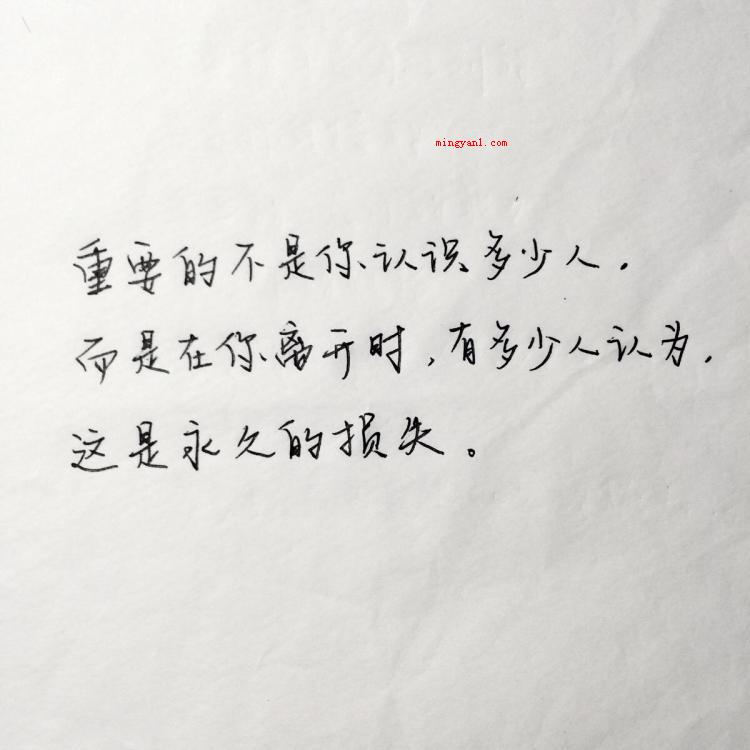 mingyan1.com
重要的不是你认识多少人，
而是在你离开时，有多少人认为，
这是永久的损失。